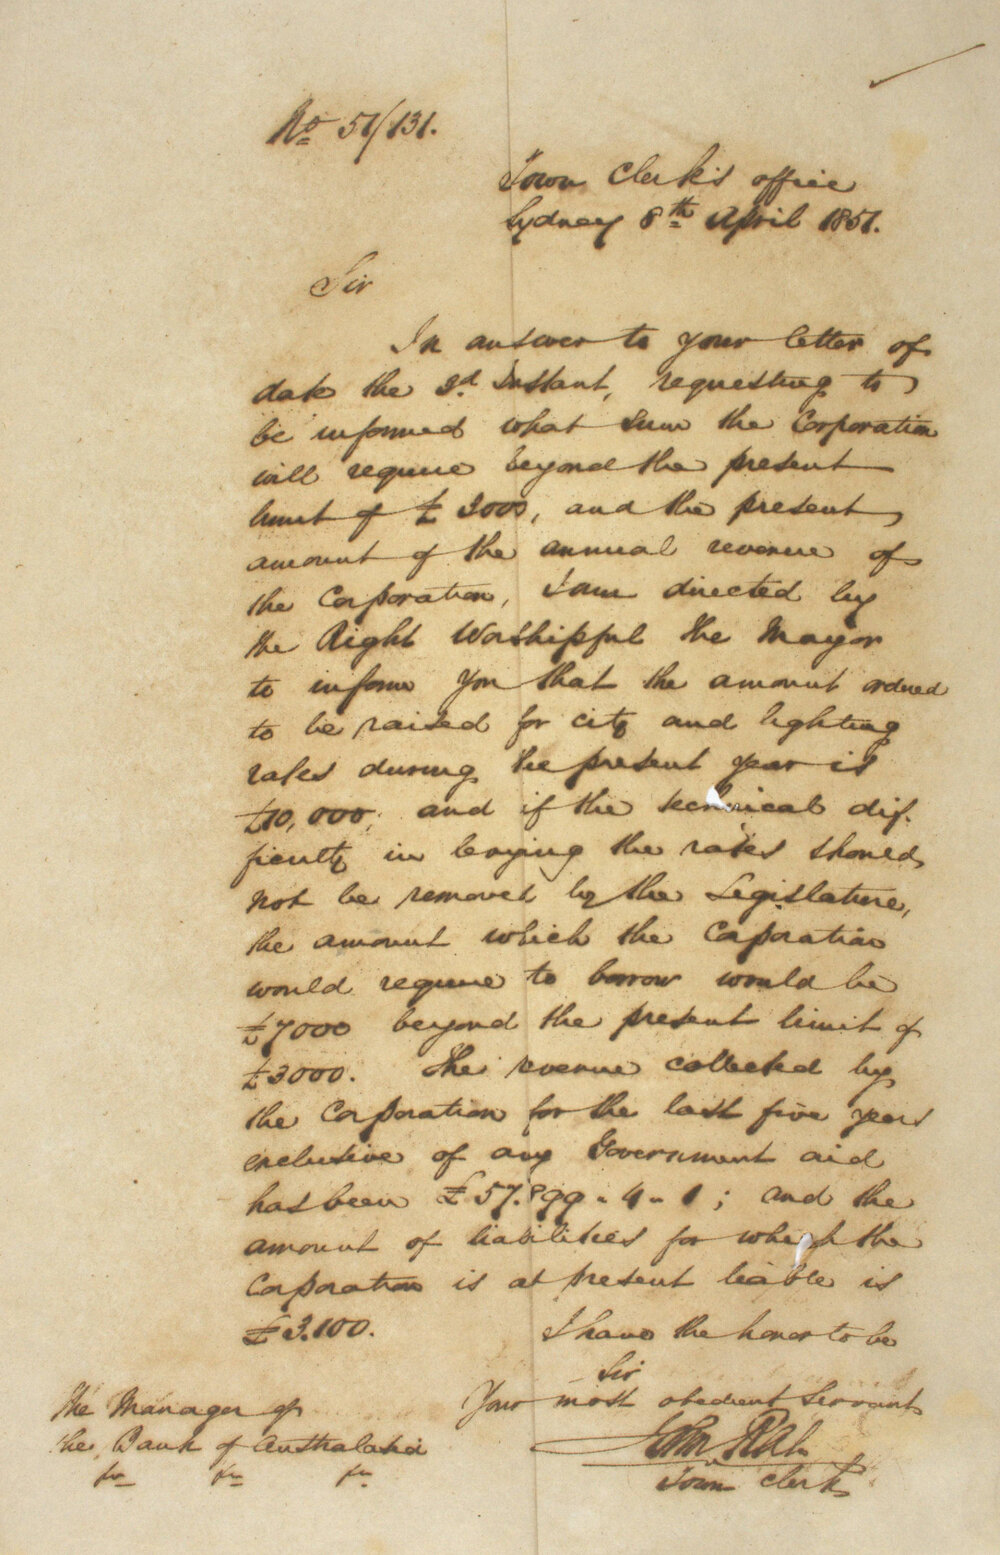 No 51/131.
Town Clerk's office
Sydney 8th April 1851.
Sir
In answer to your letter of
date the 3d Instant, requesting to
be informed what sum the Corporation
will require beyond the present
limit of £3000, and the present
amount of the annual revenue of
the Corporation, I am directed by
the Right Worshipful the Mayor
to inform you that the amount ordered
to be raised for city and lighting
rates during the present year is
£10,000; and if the technical dif-
ficulty in levying the rates should
not be removed by the Legislature,
the amount which the Corporation
would require to borrow would be
£7000 beyond the present limit of
£3000. The revenue collected by
the Corporation for the last five years
exclusive of any Government aid
has been £57.899 - 4 - 1; and the
amount of liabilities for which the
Corporation is at present liable is
£3.100. I have the honor to be
Sir
Your most obedient Servant
John Rae
Town Clerk
The Manager of
the Bank of Australasia